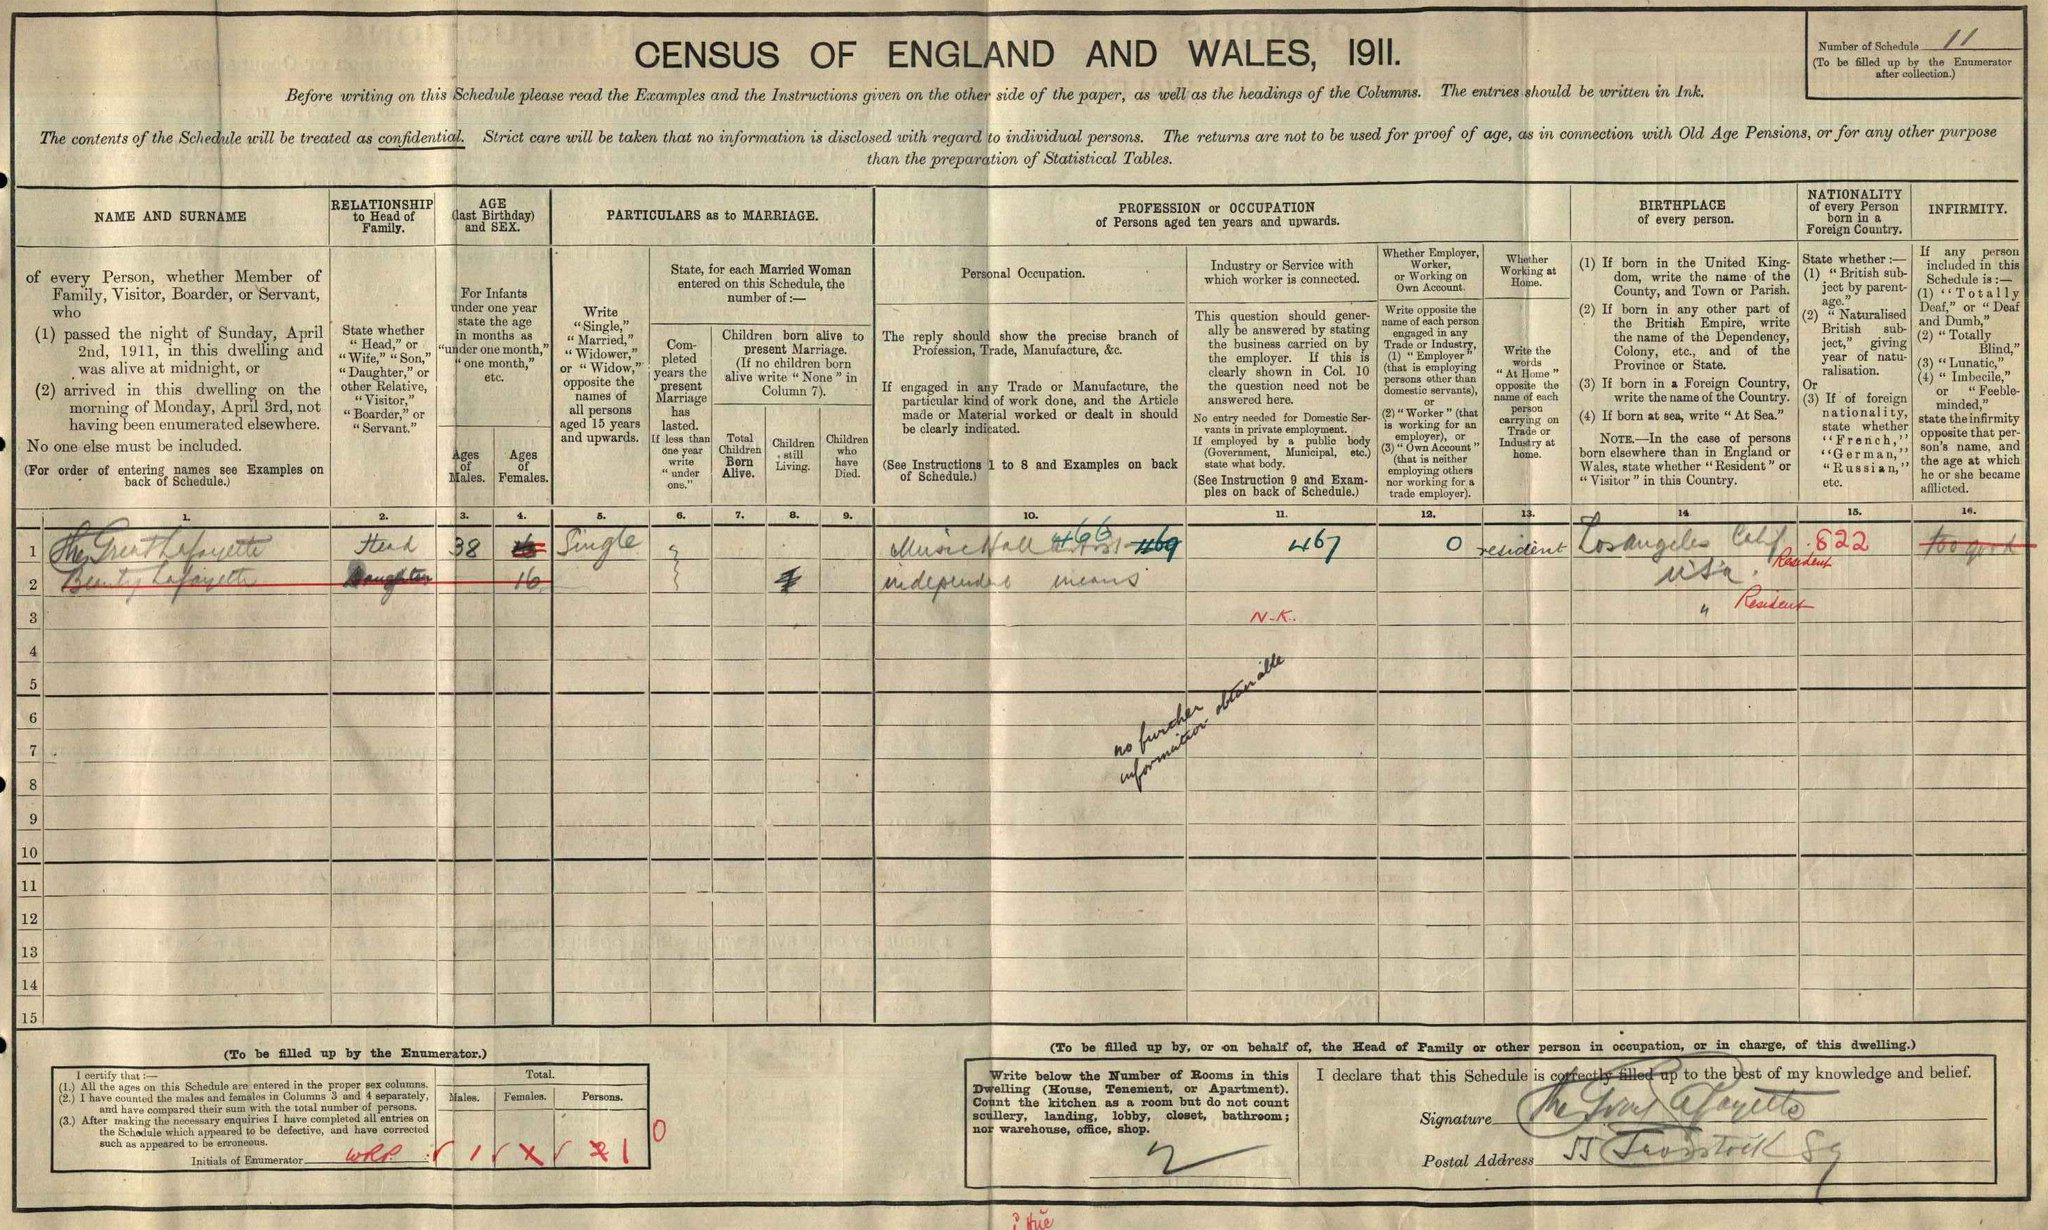 CENSUS OF ENGLAND AND WALES, 1911.
Number of Schedule 11
(To be filled up by the Enumerator
after collection.)
Before writing on this Schedule please read the Examples and the Instructions given on the other side of the paper, as well as the headings of the Columns. The entries should be written in Ink.
The contents of the Schedule will be treated as confidential. Strict care will be taken that no information is disclosed with regard to individual persons. The returns are not to be used for proof of age, as in connection with Old Age Pensions, or for any other purpose
than the preparation of Statistical Tables.
NAME AND SURNAME
of every Person, whether Member of
Family, Visitor, Boarder, or Servant,
who
(1) passed the night of Sunday, April
2nd, 1911, in this dwelling and
was alive at midnight, or
(2) arrived in this dwelling on the
morning of Monday, April 3rd, not
having been enumerated elsewhere.
No one else must be included.
(For order of entering names see Examples on
back of Schedule.)
RELATIONSHIP
to Head of
Family.
State whether
"Head," or
"Wife," "Son,"
"Daughter," or
other Relative,
"Visitor,"
"Boarder," or
"Servant."
AGE
(last Birthday)
and SEX.
For Infants
under one year
state the age
in months as
"under one month,"
"one month,"
etc.
Ages
of
Males.
Ages
of
Females.
PARTICULARS as to MARRIAGE.
Write
"Single,"
"Married,"
"Widower,"
or "Widow,"
opposite the
names of
all persons
aged 15 years
and upwards.
State, for each Married Woman
entered on this Schedule, the
number of:—
Com-
pleted
years the
present
Marriage
has
lasted.
If less than
one year
write
"under
one."
Children born alive to
present Marriage.
(If no children born
alive write "None" in
Column 7).
Total
Children
Born
Alive.
Children
still
Living.
Children
who
have
Died.
PROFESSION or OCCUPATION
of Persons aged ten years and upwards.
Personal Occupation.
The reply should show the precise branch of
Profession, Trade, Manufacture, &c.
If engaged in any Trade or Manufacture, the
particular kind of work done, and the Article
made or Material worked or dealt in should
be clearly indicated.
(See Instructions 1 to 8 and Examples on back
of Schedule.)
Industry or Service with
which worker is connected.
This question should gener-
ally be answered by stating
the business carried on by
the employer. If this is
clearly shown in Col. 10
the question need not be
answered here.
No entry needed for Domestic Ser-
vants in private employment.
If employed by a public body
(Government, Municipal, etc.)
state what body.
(See Instruction 9 and Exam-
ples on back of Schedule.)
Whether Employer,
Worker,
or Working on
Own Account.
Write opposite the
name of each person
engaged in any
Trade or Industry,
(1) "Employer"
(that is employing
persons other than
domestic servants),
or
(2) "Worker" (that
is working for an
employer), or
(3) "Own Account"
(that is neither
employing others
nor working for a
trade employer).
Whether
Working at
Home.
Write the
words
"At Home"
opposite the
name of each
person
carrying on
Trade or
Industry at
home.
BIRTHPLACE
of every person.
(1) If born in the United King-
dom, write the name of the
County, and Town or Parish.
(2) If born in any other part of
the British Empire, write
the name of the Dependency,
Colony, etc., and of the
Province or State.
(3) If born in a Foreign Country,
write the name of the Country.
(4) If born at sea, write "At Sea."
NOTE.—In the case of persons
born elsewhere than in England or
Wales, state whether "Resident" or
"Visitor" in this Country.
NATIONALITY
of every Person
born in a
Foreign Country.
State whether:—
(1) "British sub-
ject by parent-
age."
(2) "Naturalised
British sub-
ject," giving
year of natu-
ralisation.
Or
(3) If of foreign
nationality,
state whether
"French,"
"German,"
"Russian,"
etc.
INFIRMITY.
If any person
included in this
Schedule is:—
(1) "Totally
Deaf," or "Deaf
and Dumb,"
(2) "Totally
Blind,"
(3) "Lunatic,"
(4) "Imbecile,"
or "Feeble-
minded,"
state the infirmity
opposite that per-
son's name, and
the age at which
he or she became
afflicted.
1. 2. 3. 4. 5. 6. 7. 8. 9. 10. 11. 12. 13. 14. 15. 16.
1 The Great Lafayette Head 38 16 Single Music Hall Artist 466 469 467 0 resident Los Angeles Calif 822 too good
2 Beauty Lafayette Daughter 16 independent means USA. Resident
3 N.K. " Resident
4
5
6 no further
7 information obtainable
8
9
10
11
12
13
14
15
(To be filled up by the Enumerator.)
I certify that:—
(1.) All the ages on this Schedule are entered in the proper sex columns.
(2.) I have counted the males and females in Columns 3 and 4 separately,
and have compared their sum with the total number of persons.
(3.) After making the necessary enquiries I have completed all entries on
the Schedule which appeared to be defective, and have corrected
such as appeared to be erroneous.
Initials of Enumerator WRP.
Total.
Males. Females. Persons.
1 1 2 1 0
(To be filled up by, or on behalf of, the Head of Family or other person in occupation, or in charge, of this dwelling.)
Write below the Number of Rooms in this
Dwelling (House, Tenement, or Apartment).
Count the kitchen as a room but do not count
scullery, landing, lobby, closet, bathroom;
nor warehouse, office, shop.
2
I declare that this Schedule is correctly filled up to the best of my knowledge and belief.
Signature The Great Lafayette
Postal Address 55 Tavistock Sq